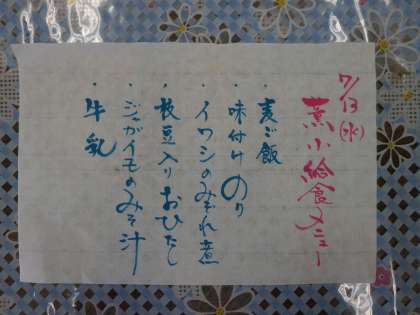 7/13(水)
薫小給食メニュー
・麦ご飯
・味付けのり
・イワシのみぞれ煮
・枝豆入りおひたし
・ジャガイモのみそ汁
・牛乳